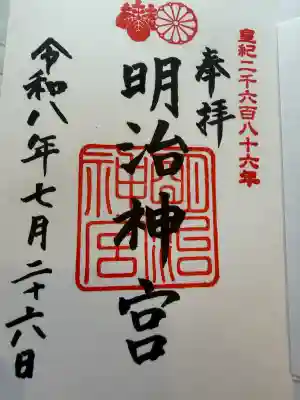 皇紀二千六百八十六年
奉拝
明治神宮
明治神宮
令和八年七月二十六日